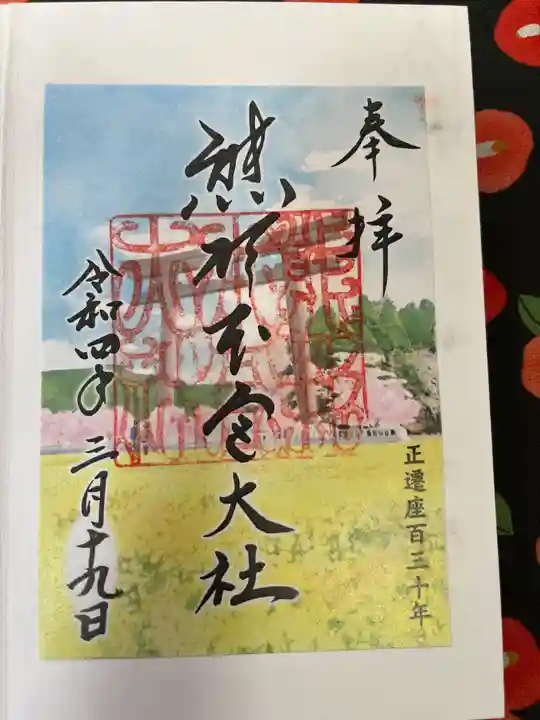 奉拝
熊野本宮大社
令和四年 三月十九日
正遷座百三十年